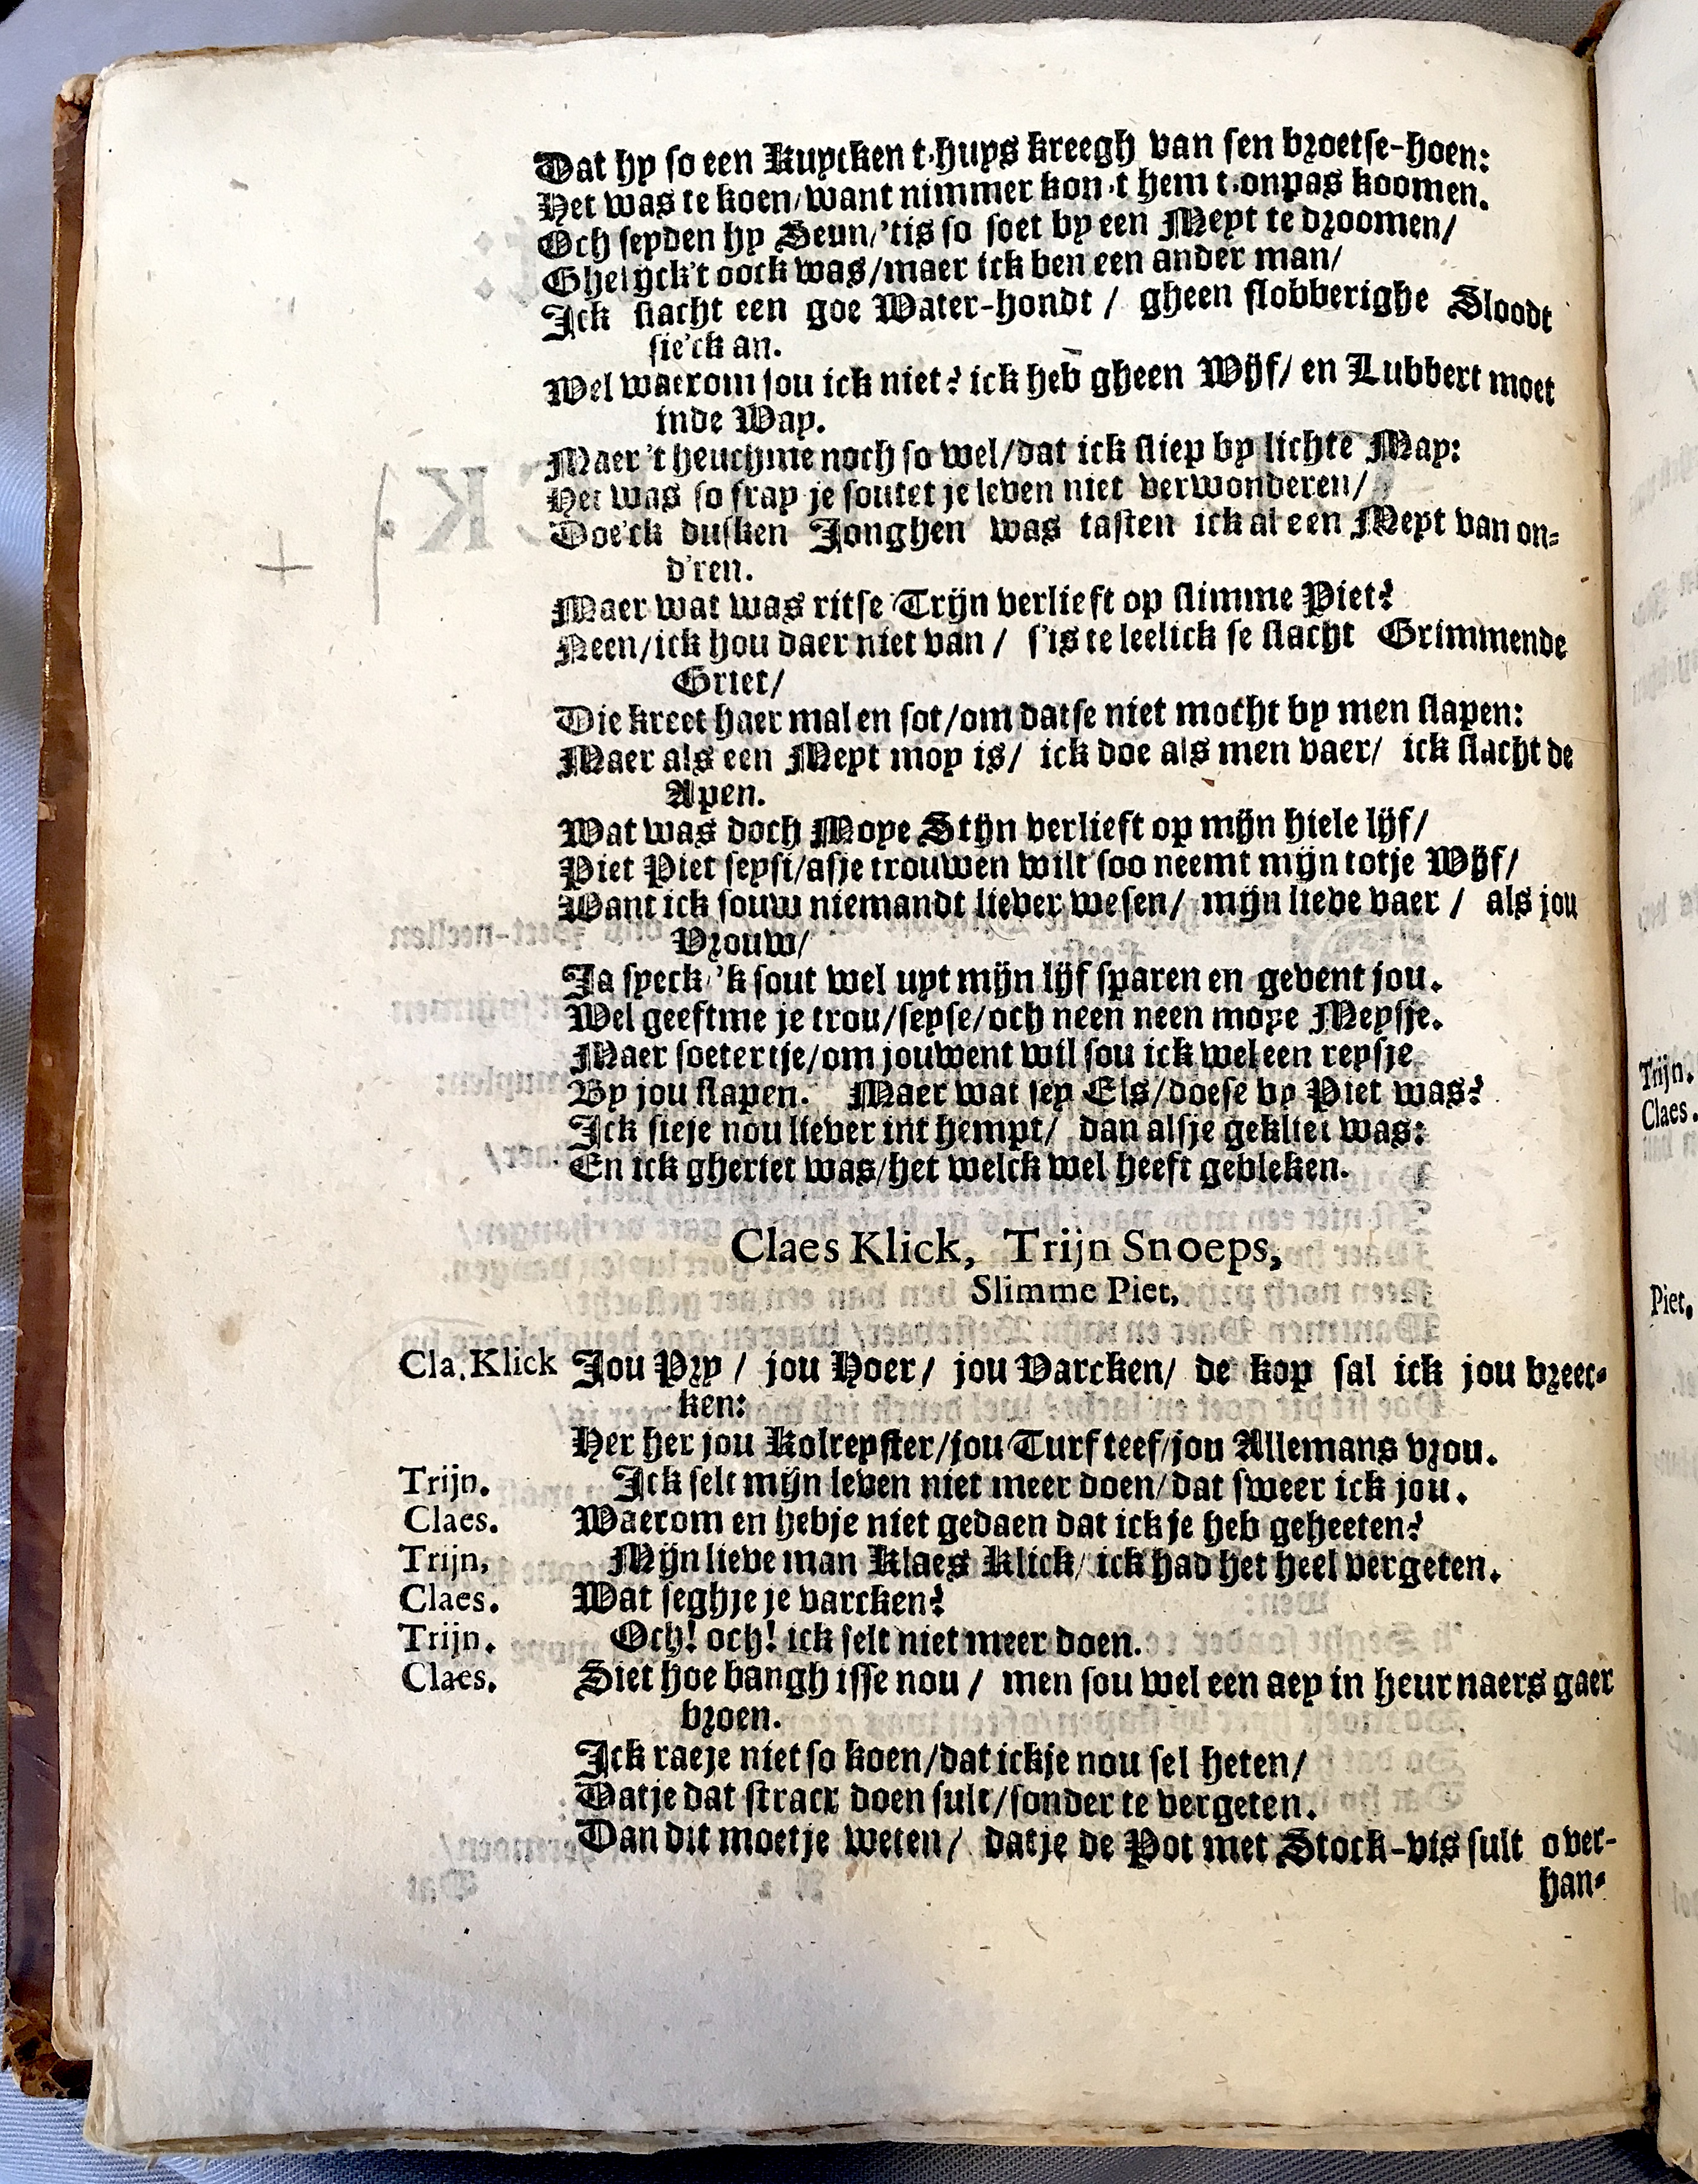 Dat hy so een Kuycken t'huys kreegh van sen broetse-hoen:
Het was te koen/want nimmer kon 't hem t'onpas koomen.
Och seyden hy Seun/'tis so soet by een Meyt te droomen/
Ghelijck't oock was/maer ick ben een ander man/
Ick slacht een goe Water-hondt / gheen slobberighe Sloodt
sie'ck an.
Wel waerom sou ick niet? ick heb gheen Wijf/ en Lubbert moet
inde Way.
Maer 't heuchme noch so wel/dat ick sliep by lichte May:
Het was so fray je soutet je leven niet verwonderen/
Doe'ck dusken Jonghen was tasten ick al een Meyt van on-
d'ren.
Maer wat was ritse Trijn verlieft op slimme Piet?
Neen/ick hou daer niet van / s'is te leelick se slacht Grimmende
Griet/
Die kreet haer mal en sot/om datse niet mocht by men slapen:
Maer als een Meyt moy is/ ick doe als men vaer/ ick slacht de
Apen.
Wat was doch Moye Stijn verlieft op mijn hiele lijf/
Piet Piet seysi/asje trouwen wilt soo neemt mijn totje Wijf/
Want ick souw niemandt liever wesen/ mijn lieve vaer / als jou
Vrouw/
Ja speck/'k sout wel uyt mijn lijf sparen en gevent jou.
Wel geeftme je trou/seyse/och neen neen moye Meysje.
Maer soetertje/om jouwent wil sou ick wel een reysje
By jou slapen. Maer wat sey Els/doese by Piet was?
Ick sieje nou liever int hempt/ dan alsje gekliet was:
En ick gheriet was/het welck wel heeft gebleken.
Claes Klick, Trijn Snoeps,
Slimme Piet,
Cla. Klick Jou Pry / jou Hoer/ jou Varcken/ de kop sal ick jou breec-
ken:
Her her jou Kolreyster/jou Turf teef/jou Allemans vrou.
Trijn. Ick selt mijn leven niet meer doen/dat sweer ick jou.
Claes. Waerom en hebje niet gedaen dat ick je heb geheeten?
Trijn, Mijn lieve man Klaes Klick/ ick had het heel vergeten.
Claes. Wat seghje je varcken?
Trijn. Och! och! ick selt niet meer doen.
Claes. Siet hoe bangh isse nou / men sou wel een aey in heur naers gaer
broen.
Ick raeje niet so koen/dat ickje nou sel heten/
Datje dat stracx doen sult/sonder te vergeten.
Dan dit moetje weten/ datje de Pot met Stock-vis sult over-
han-
Trijn.
Claes.
Piet.